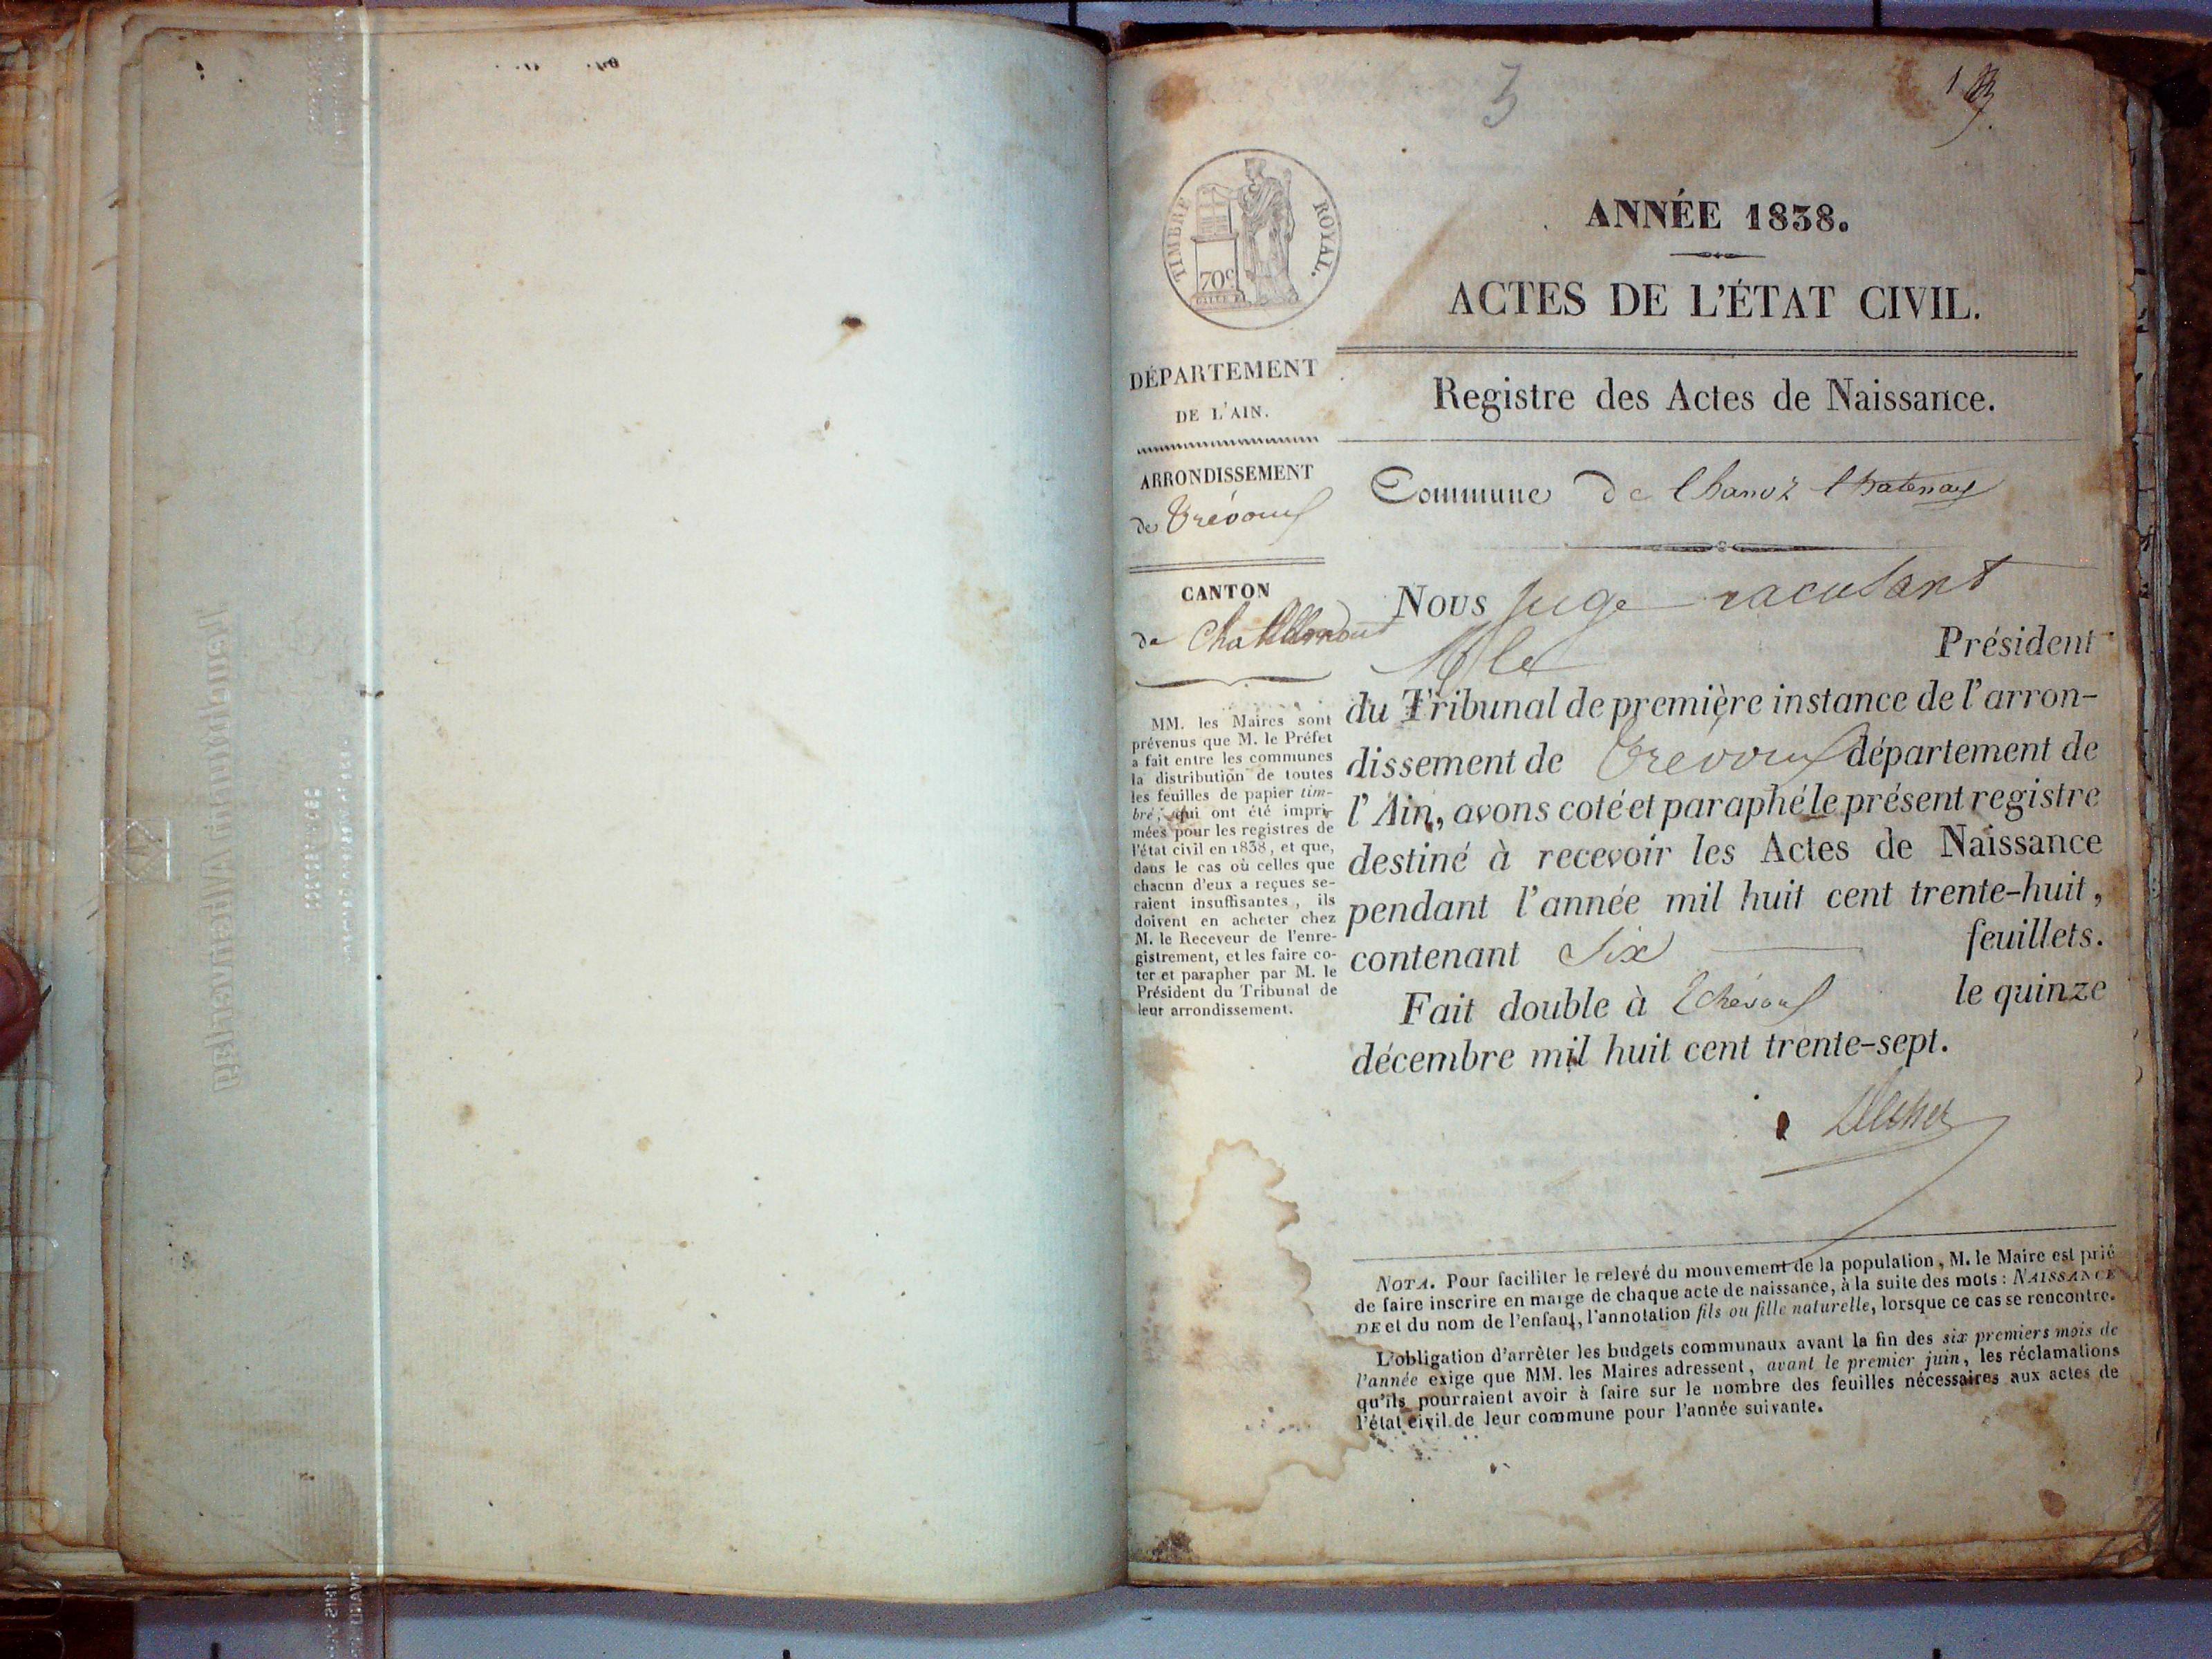 3
TIMBRE ROYAL.
70c
ANNÉE 1838.
ACTES DE L'ÉTAT CIVIL.
Registre des Actes de Naissance.
DÉPARTEMENT
DE L'AIN.
ARRONDISSEMENT
de Trévoux
CANTON
de
MM. les Maires sont
prévenus que M. le Préfet
a fait entre les communes
la distribution de toutes
les feuilles de papier tim-
bré, qui ont été impri-
mées pour les registres de
l'état civil en 1838, et que,
dans le cas où celles que
chacun d'eux a reçues se-
raient insuffisantes, ils
doivent en acheter chez
M. le Receveur de l'enre-
gistrement, et les faire co-
ter et parapher par M. le
Président du Tribunal de
leur arrondissement.
Commune de Chanoz Chatenay
Nous juge
M le Président
du Tribunal de première instance de l'arron-
dissement de Trévoux département de
l'Ain, avons coté et paraphé le présent registre
destiné à recevoir les Actes de Naissance
pendant l'année mil huit cent trente-huit,
contenant Six feuillets.
Fait double à Trévoux le quinze
décembre mil huit cent trente-sept.
NOTA. Pour faciliter le relevé du mouvement de la population, M. le Maire est prié
de faire inscrire en marge de chaque acte de naissance, à la suite des mots : NAISSANCE
DE et du nom de l'enfant, l'annotation fils ou fille naturelle, lorsque ce cas se rencontre.
L'obligation d'arrêter les budgets communaux avant la fin des six premiers mois de
l'année exige que MM. les Maires adressent, avant le premier juin, les réclamations
qu'ils pourraient avoir à faire sur le nombre des feuilles nécessaires aux actes de
l'état civil de leur commune pour l'année suivante.